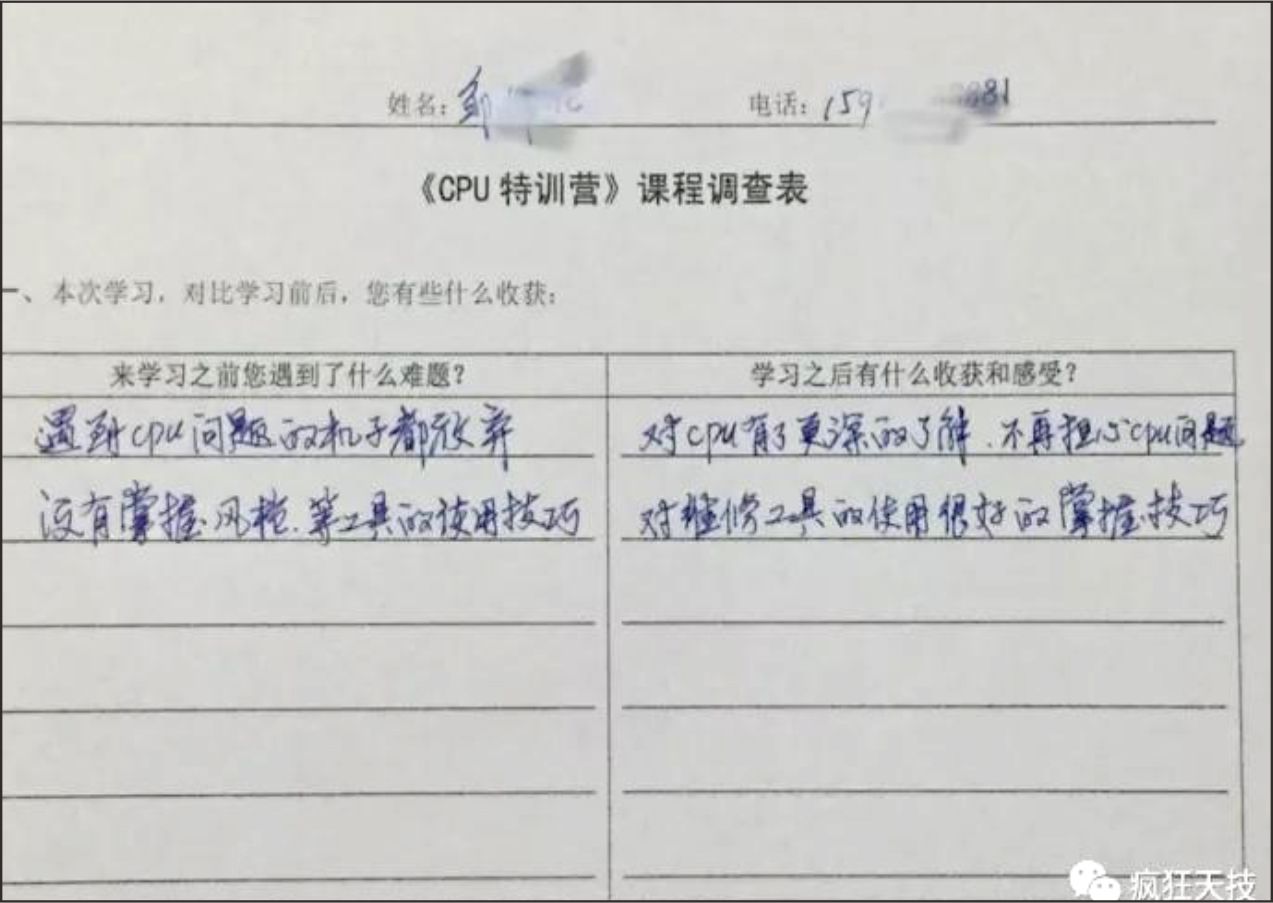 姓名： 电话：159
《CPU 特训营》课程调查表
一、本次学习，对比学习前后，您有些什么收获：
来学习之前您遇到了什么难题？ 学习之后有什么收获和感受？
遇到cpu问题的机子都放弃 对cpu有了更深的了解、不再担心cpu问题
没有掌握风枪、等工具的使用技巧 对维修工具的使用很好的掌握技巧
疯狂天技